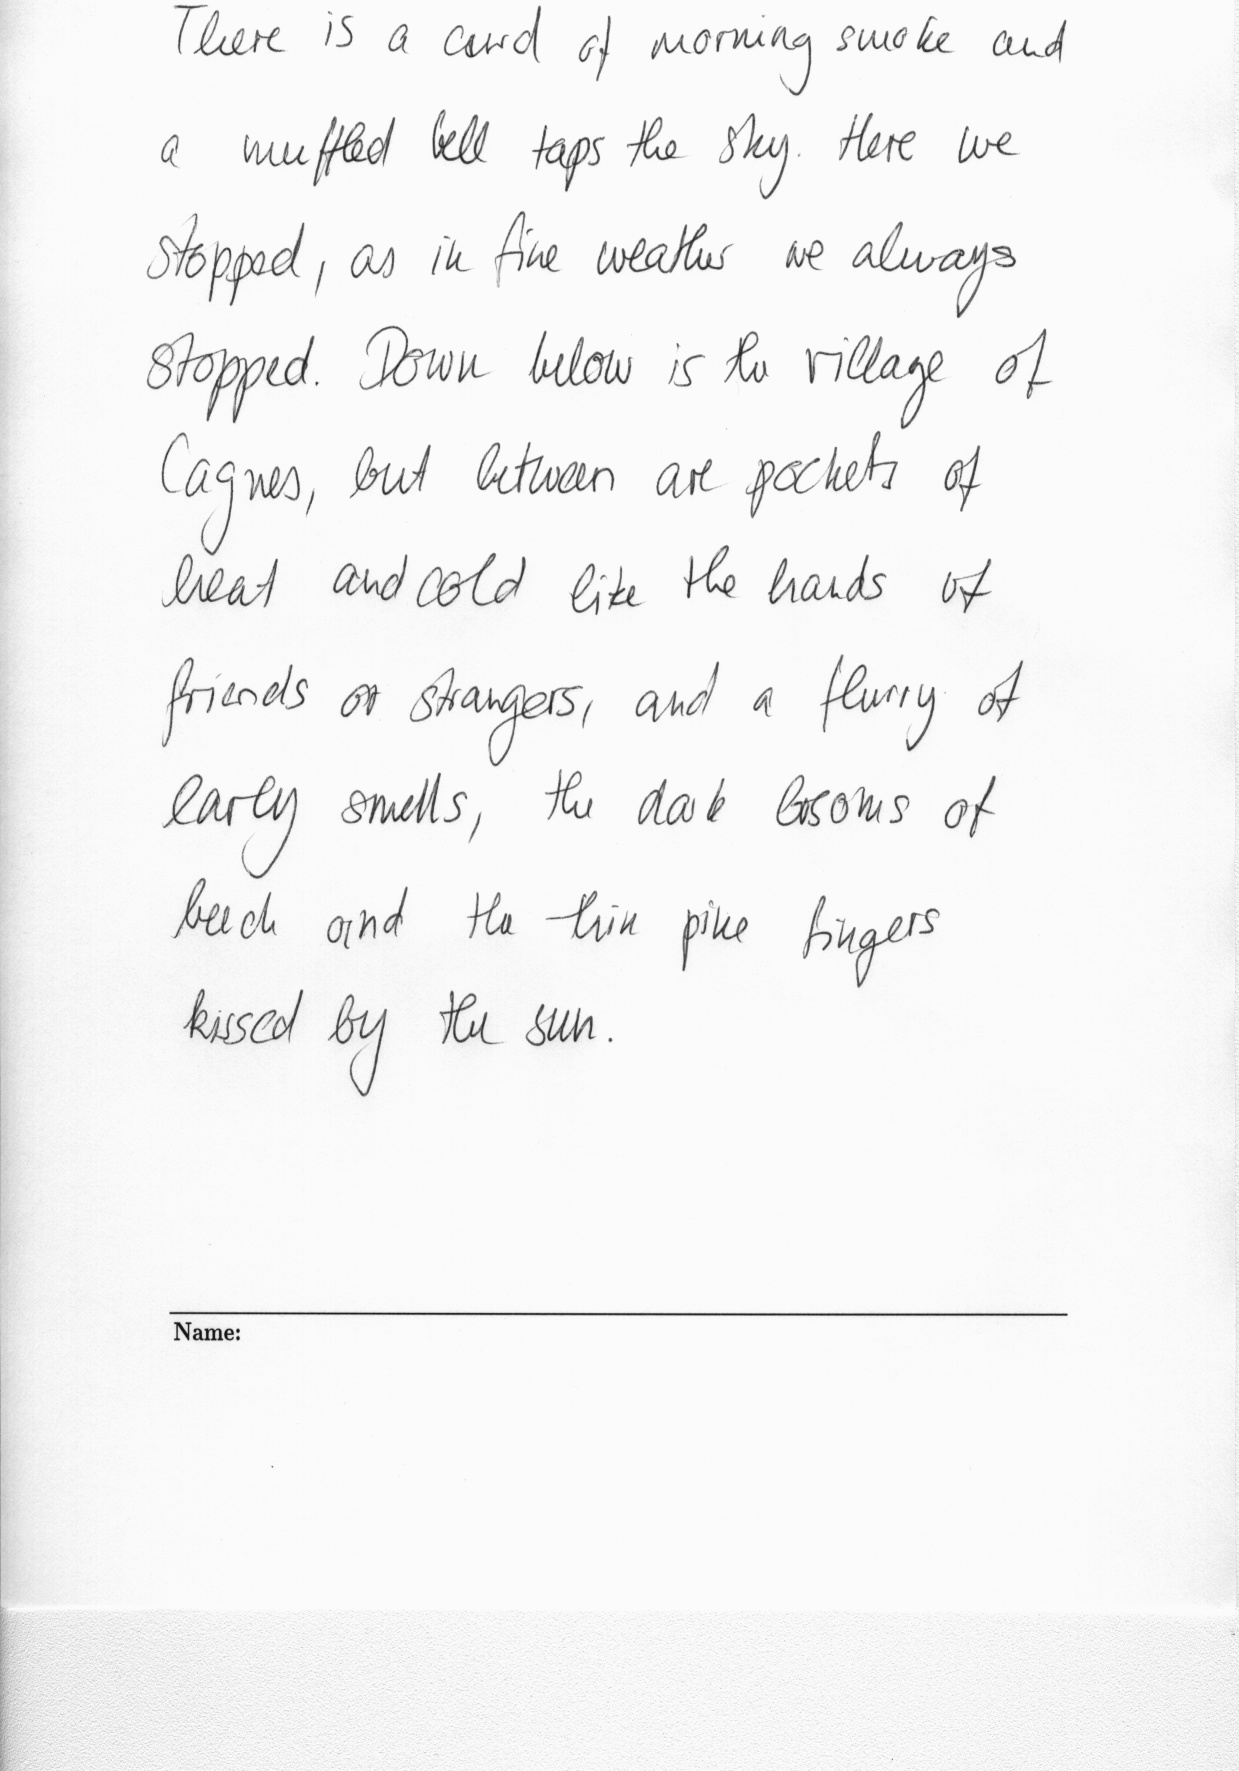 There is a curd of morning smoke and
a muffled bell taps the sky. Here we
stopped, as in fine weather we always
stopped. Down below is the village of
Cagnes, but between are pockets of
heat and cold like the hands of
friends or strangers, and a flurry of
early smells, the dark bosoms of
beech and the thin pine fingers
kissed by the sun.
Name: